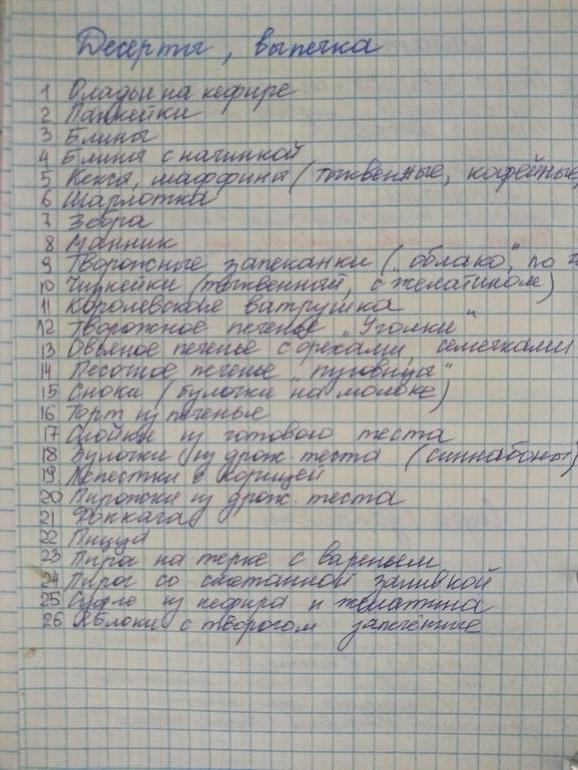 Десерты, выпечка
1 Оладьи на кефире
2 Панкейки
3 Блины
4 Блины с начинкой
5 Кексы, маффины (тыквенные, кофейные,
6 Шарлотка
7 Зебра
8 Манник
9 Творожные запеканки („облако", по
10 Чизкейки (тыквенный, с желатином)
11 Королевская ватрушка
12 Творожное печенье „Уголки"
13 Овсяное печенье с орехами, семечками
14 Песочное печенье „пуговицы"
15 Сноки (булочки на молоке)
16 Торт из печенья
17 Слойки из готового теста
18 Булочки из дрож. теста (синнабоны)
19 Лепестки с корицей
20 Пирожки из дрож. теста
21 Фоккача
22 Пицца
23 Пирог на терке с вареньем
24 Пирог со сметанной заливкой
25 Суфле из кефира и желатина
26 Яблоки с творогом запеченные